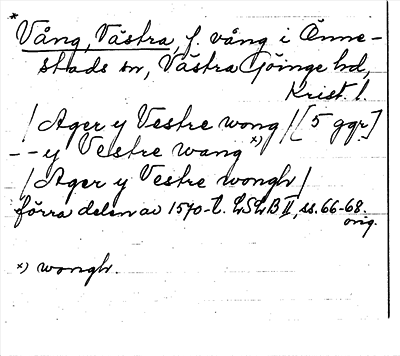 *
Vång, Västra, f. vång i Önne-
stads sn, Västra Göinge hd,
Krist. l.
/ Ager y Vestre wong / [5 ggr.]
- - y Vestre wang x)
/ Ager y Vestre wongh /
förra delen av 1570-t. LSLB II, ss. 66-68.
orig.
x) wongh.